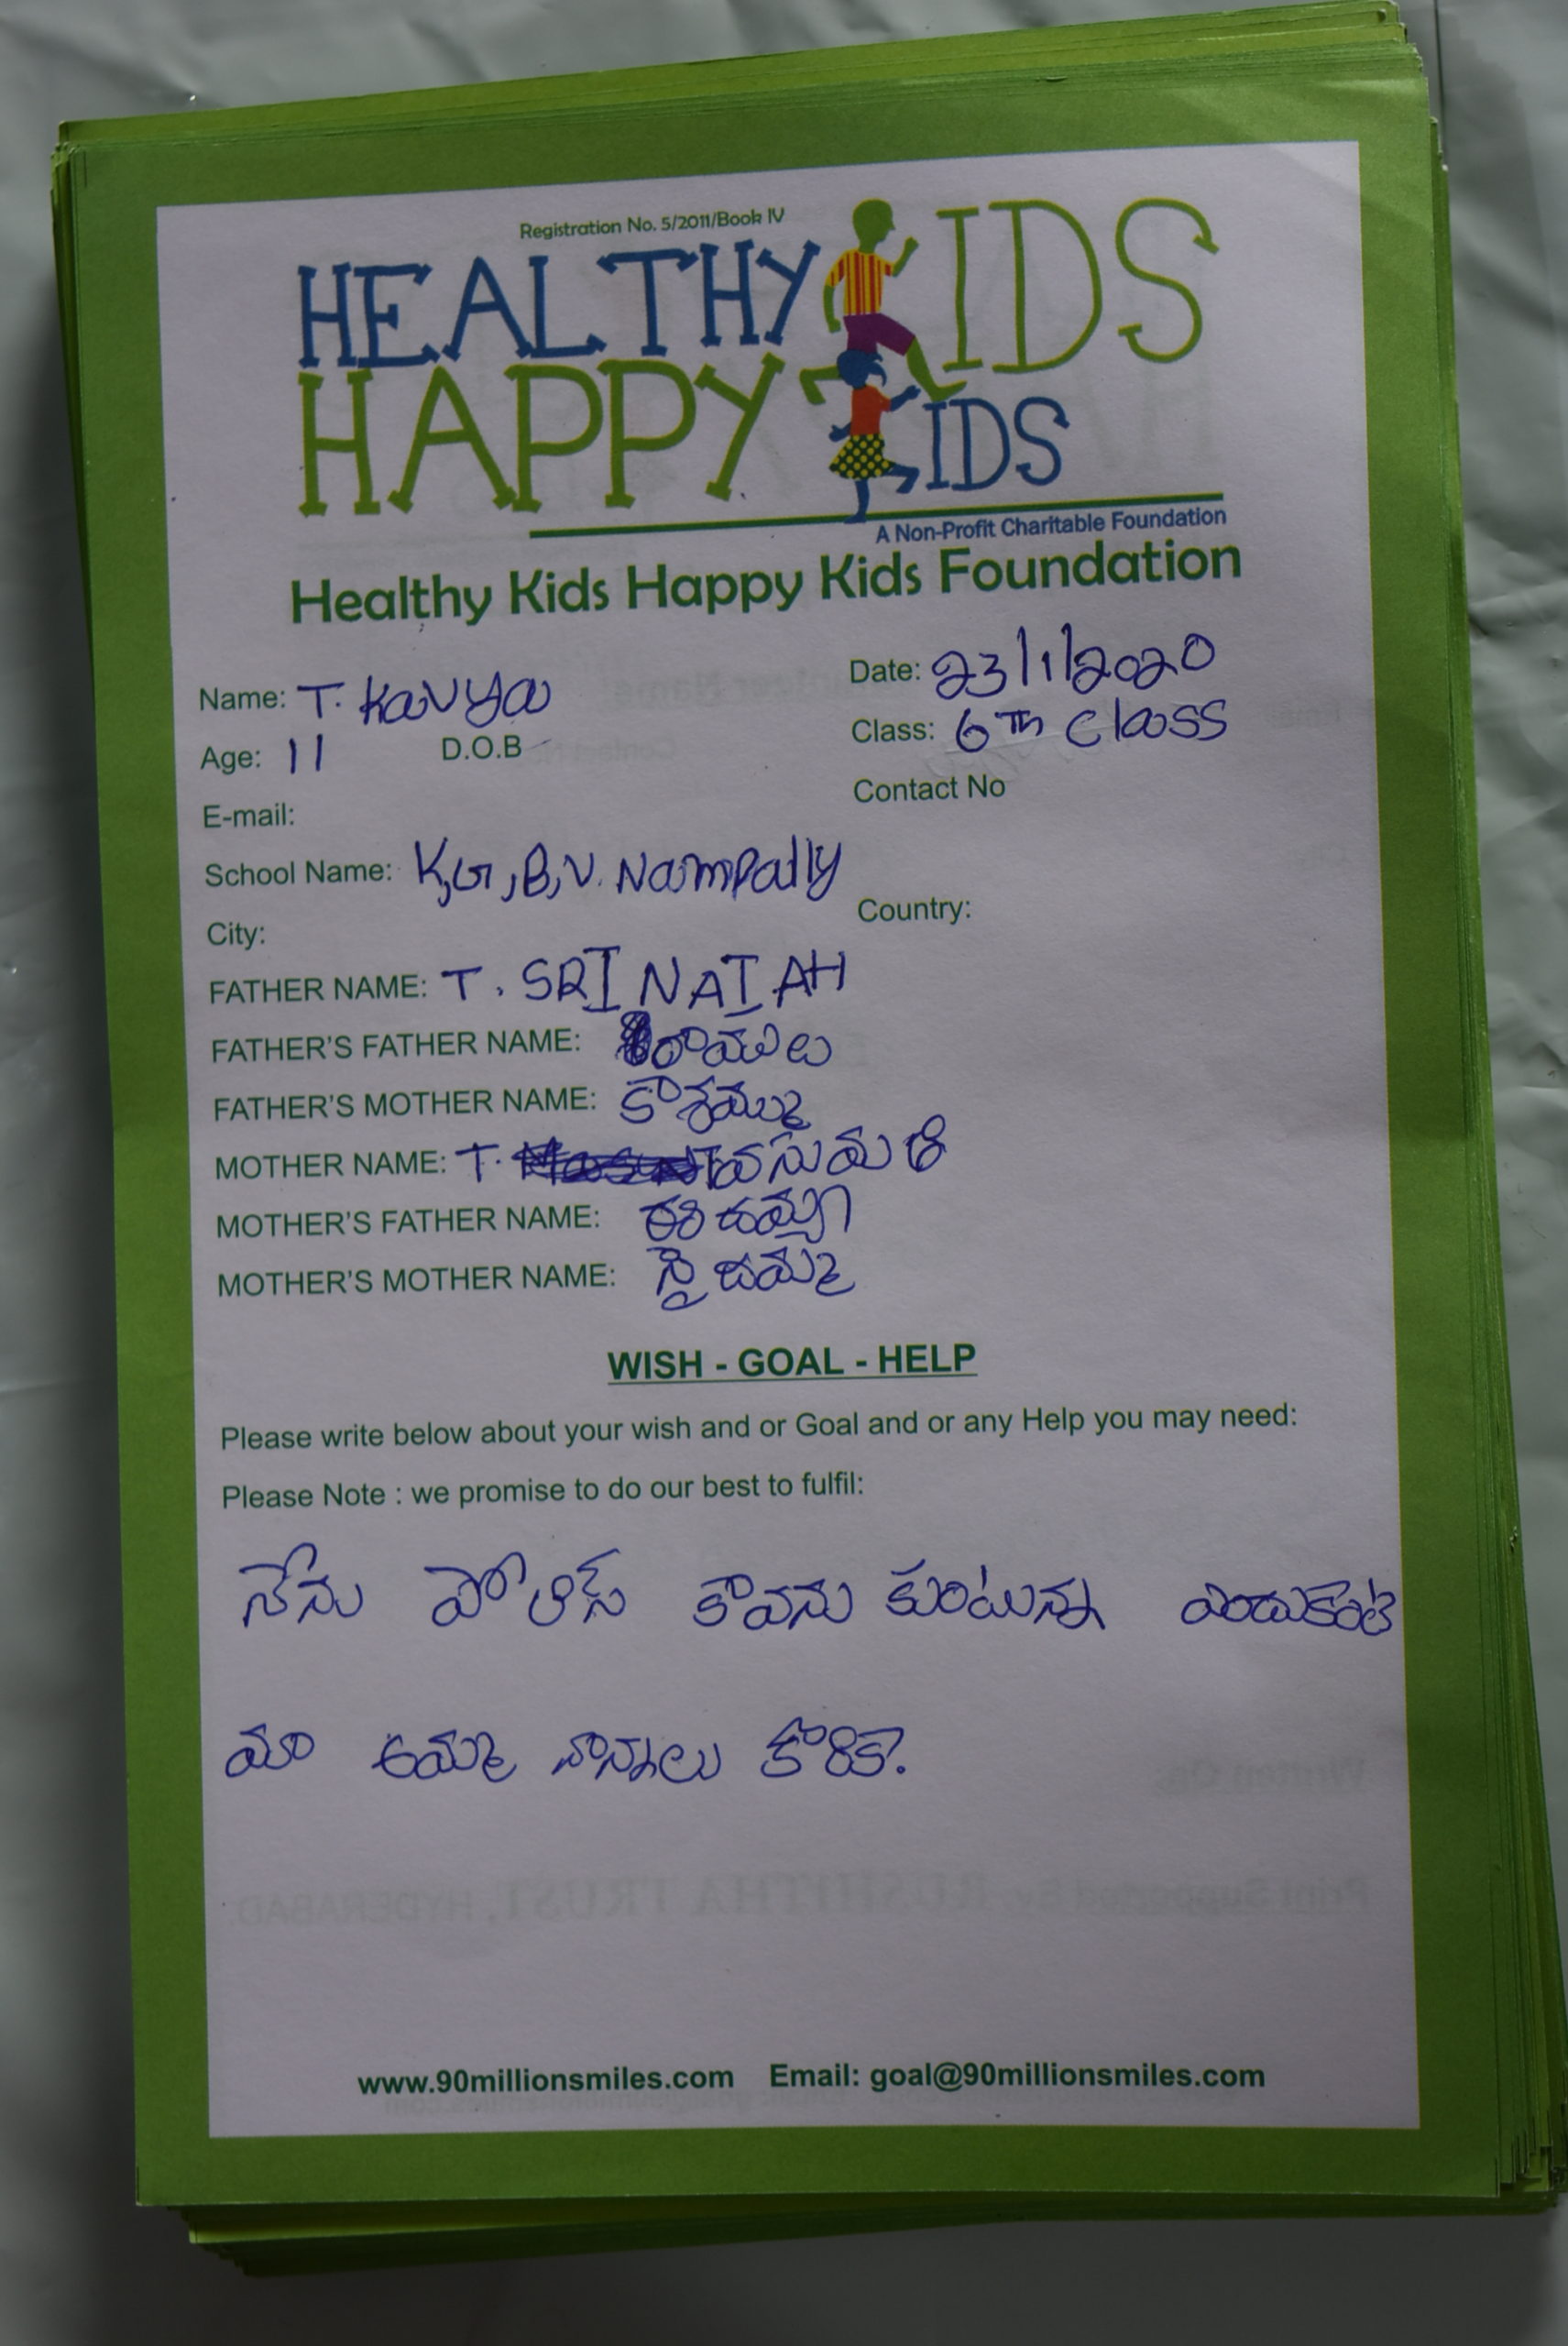 Registration No. 5/2011/Book IV
HEALTHY KIDS
HAPPY KIDS
A Non-Profit Charitable Foundation
Healthy Kids Happy Kids Foundation
Name: T. Kavya Date: 23/1/2020
Age: 11 D.O.B Class: 6th class
E-mail: Contact No
School Name: K,G,B,V. Nampally
City: Country:
FATHER NAME: T. SRINAIAH
FATHER'S FATHER NAME: రాములు
FATHER'S MOTHER NAME: కాశమ్మ
MOTHER NAME: T. వసుమతి
MOTHER'S FATHER NAME:
MOTHER'S MOTHER NAME: సైదమ్మ
WISH - GOAL - HELP
Please write below about your wish and or Goal and or any Help you may need:
Please Note : we promise to do our best to fulfil:
నేను పోలిస్ కావను కుంటున్నా ఎందుకంటే
మా అమ్మ నాన్నలు కోరిక.
www.90millionsmiles.com Email: goal@90millionsmiles.com